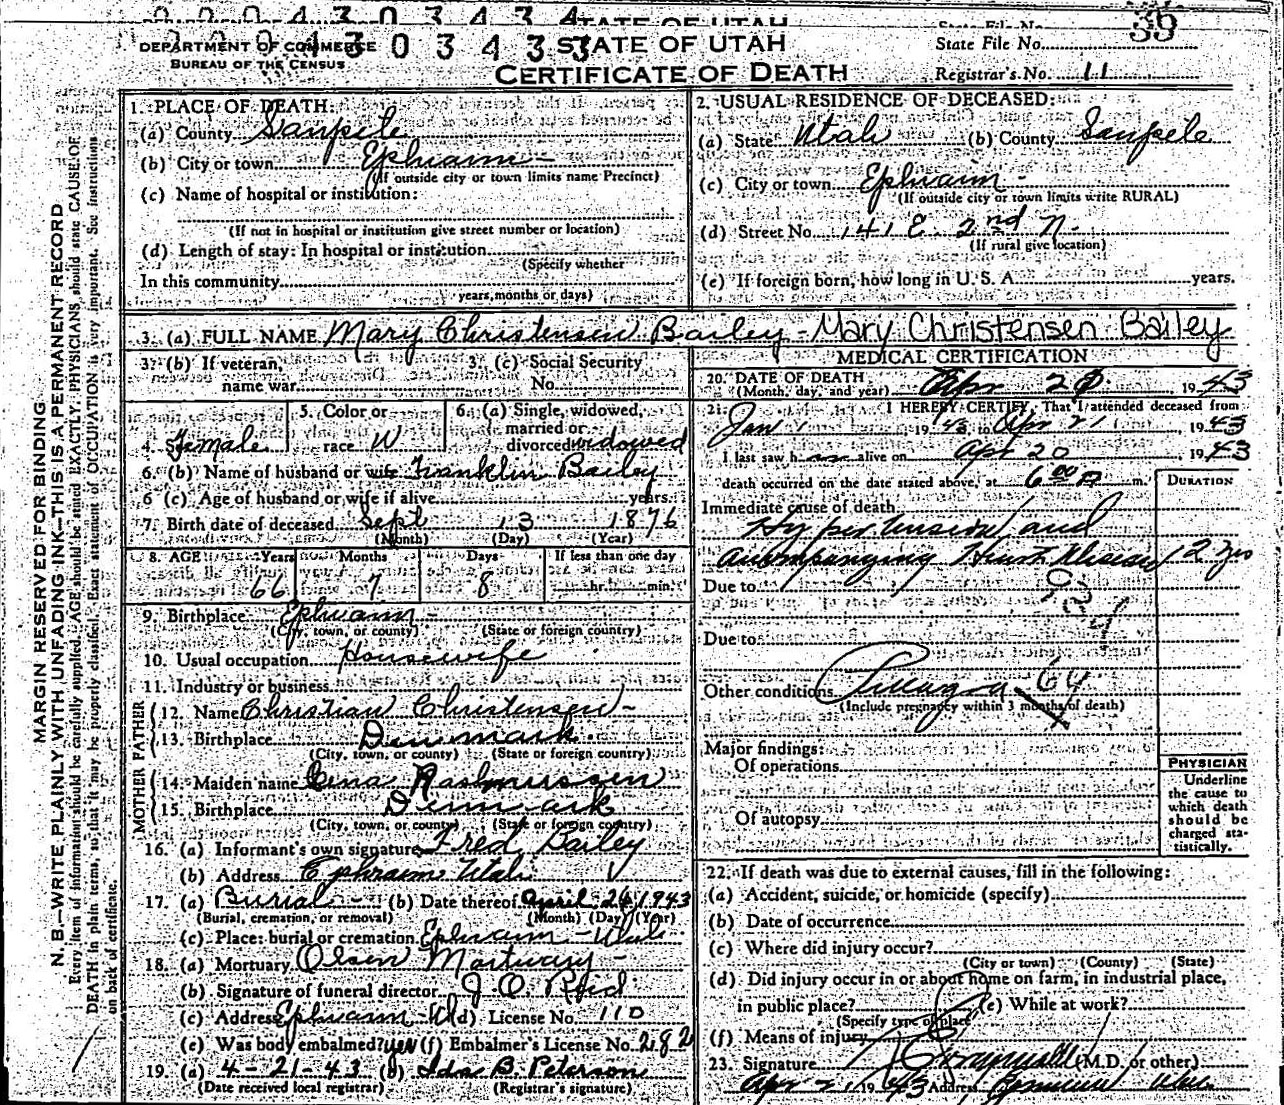 2 2 0 4 3 0 3 4 3 4 STATE OF UTAH State File No. 39
DEPARTMENT OF COMMERCE 4 3 0 3 4 3 3 STATE OF UTAH State File No.
BUREAU OF THE CENSUS CERTIFICATE OF DEATH Registrar's No. 11
MARGIN RESERVED FOR BINDING
N. B.—WRITE PLAINLY WITH UNFADING INK—THIS IS A PERMANENT RECORD
Every item of information should be carefully supplied. AGE should be stated EXACTLY. PHYSICIANS should state CAUSE OF
DEATH in plain terms, so that it may be properly classified. Exact statement of OCCUPATION is very important. See instructions
on back of certificate.
1. PLACE OF DEATH:
(a) County Sanpete
(b) City or town Ephraim
(If outside city or town limits name Precinct)
(c) Name of hospital or institution:
(If not in hospital or institution give street number or location)
(d) Length of stay: In hospital or institution
(Specify whether
In this community
years, months or days)
2. USUAL RESIDENCE OF DECEASED:
(a) State Utah (b) County Sanpete
(c) City or town Ephraim
(If outside city or town limits write RURAL)
(d) Street No. 141 E. 2nd N.
(If rural give location)
(e) If foreign born, how long in U. S. A. years.
3. (a) FULL NAME Mary Christensen Bailey - Mary Christensen Bailey
3. (b) If veteran, 3. (c) Social Security
name war No.
4. Sex Female 5. Color or race W 6. (a) Single, widowed, married or divorced widowed
6. (b) Name of husband or wife Franklin Bailey
6 (c) Age of husband or wife if alive years.
7. Birth date of deceased Sept 13 1876
(Month) (Day) (Year)
8. AGE Years Months Days If less than one day
66 7 8 hr. min.
9. Birthplace Ephraim -
(City, town, or county) (State or foreign country)
10. Usual occupation Housewife
11. Industry or business
FATHER
12. Name Christian Christensen -
13. Birthplace Denmark.
(City, town, or county) (State or foreign country)
MOTHER
14. Maiden name Rasmussen
15. Birthplace Denmark
(City, town, or county) (State or foreign country)
16. (a) Informant's own signature Fred Bailey
(b) Address Ephraim Utah V
17. (a) Burial - (b) Date thereof April 26 1943
(Burial, cremation, or removal) (Month) (Day) (Year)
(c) Place: burial or cremation Ephraim - Utah
18. (a) Mortuary Olsen Mortuary -
(b) Signature of funeral director
(c) Address Ephraim - U (d) License No. 110
(e) Was body embalmed? yes (f) Embalmer's License No. 282
19. (a) 4-21-43 (b) Ida B. Peterson
(Date received local registrar) (Registrar's signature)
MEDICAL CERTIFICATION
20. DATE OF DEATH
(Month, day, and year) Apr 20, 1943
21. I HEREBY CERTIFY, That I attended deceased from
Jan 1, 1943, to Apr 21, 1943
I last saw h alive on Apr 20, 1943
death occurred on the date stated above, at 6 00 P m. DURATION
Immediate cause of death
Hypertension and
accompanying Heart Disease 12 yrs
Due to
Due to
Other conditions 64
(Include pregnancy within 3 months of death)
Major findings:
Of operations
Of autopsy
PHYSICIAN
Underline
the cause to
which death
should be
charged sta-
tistically.
22. If death was due to external causes, fill in the following:
(a) Accident, suicide, or homicide (specify)
(b) Date of occurrence
(c) Where did injury occur?
(City or town) (County) (State)
(d) Did injury occur in or about home on farm, in industrial place,
in public place? (e) While at work?
(Specify type of place)
(f) Means of injury
23. Signature (M.D. or other)
Apr 21, 1943 Address